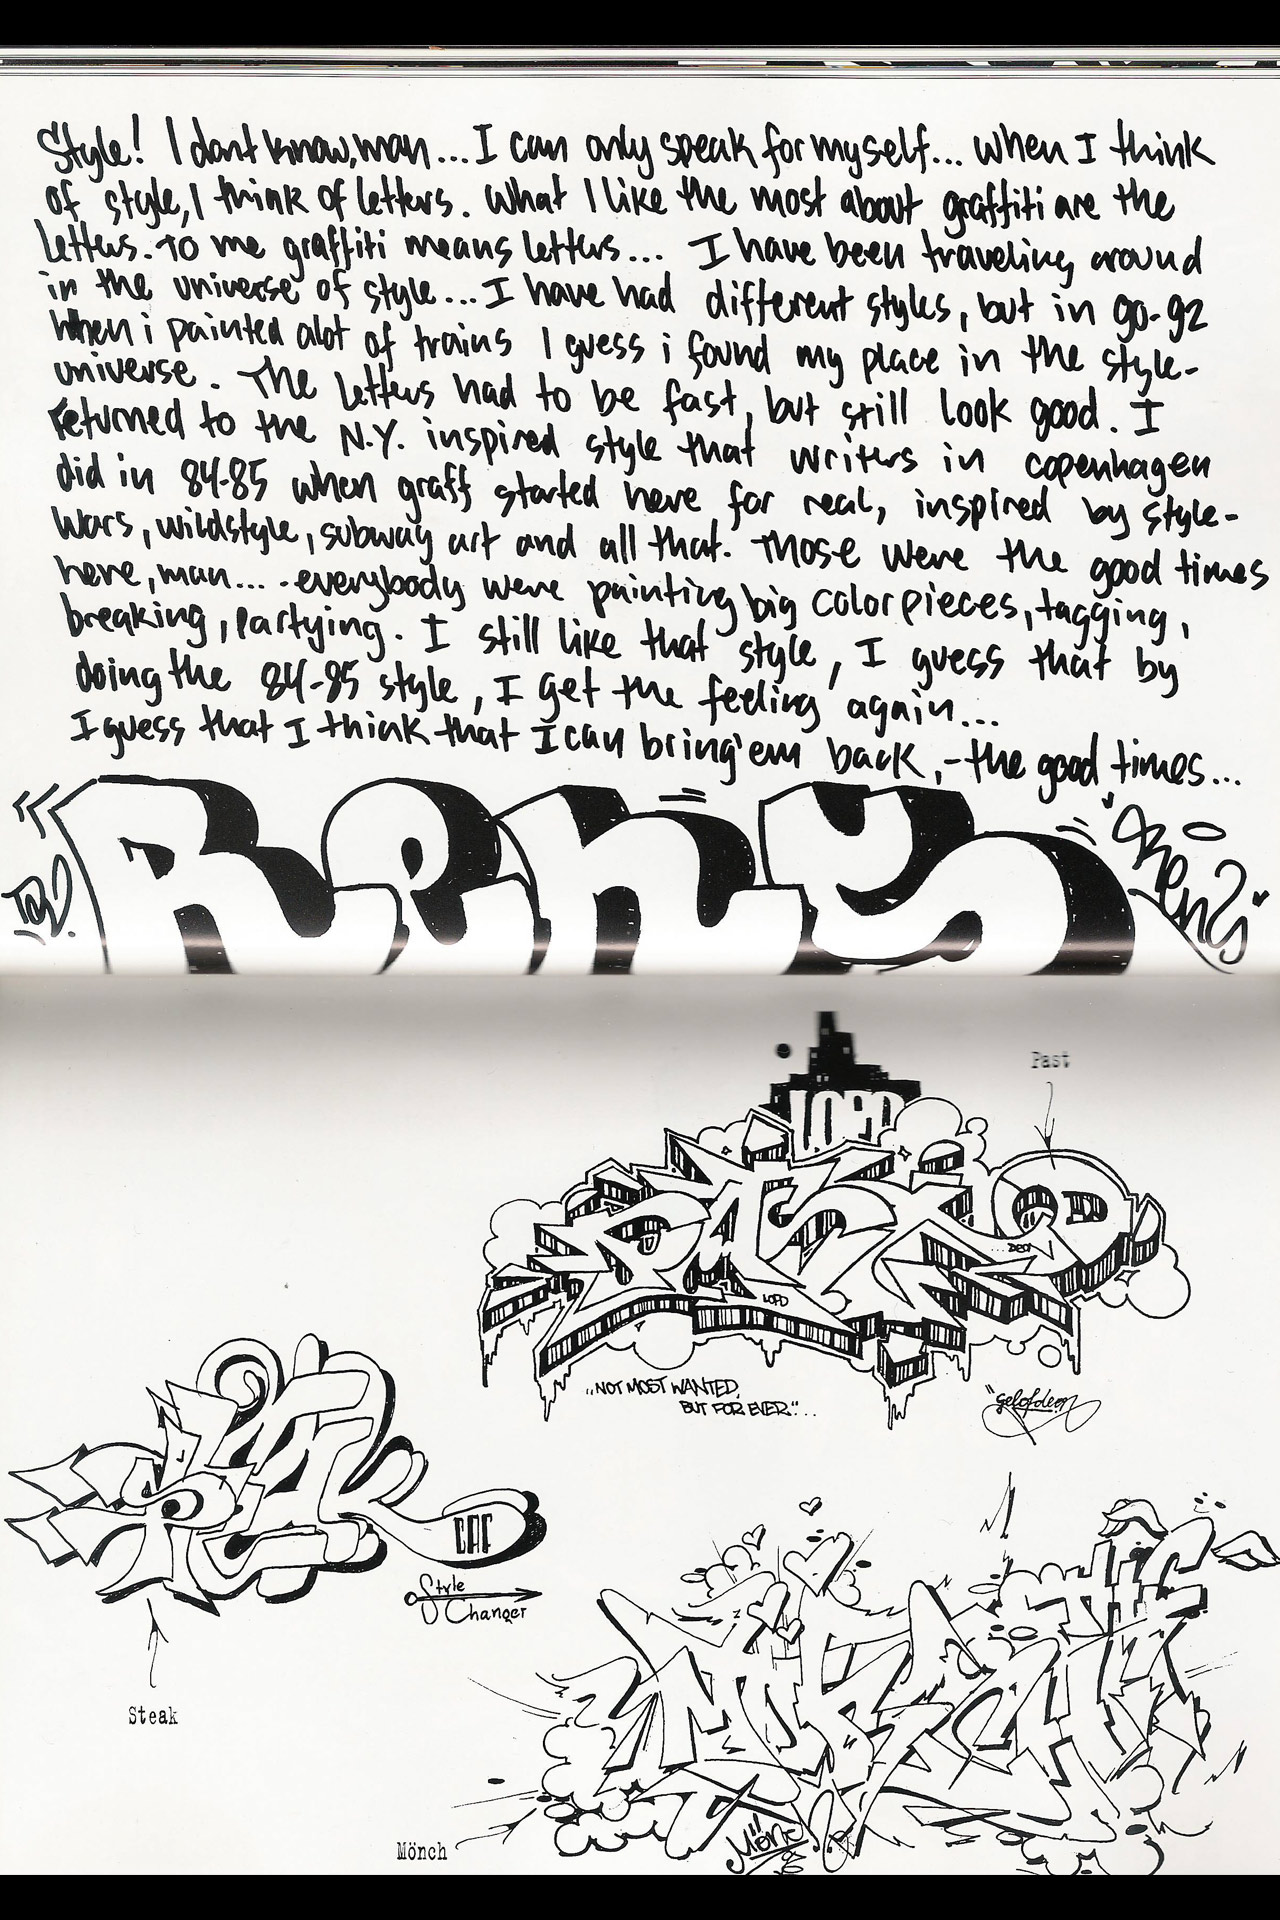 Style! I dont know, man... I can only speak for myself... when I think
of style, I think of letters. What I like the most about graffiti are the
letters. To me graffiti means letters... I have been traveling around
in the universe of style... I have had different styles, but in 90-92
when i painted alot of trains I guess i found my place in the style-
universe. The letters had to be fast, but still look good. I
returned to the N.Y. inspired style that writers in copenhagen
did in 84-85 when graff started here for real, inspired by style-
wars, wildstyle, subway art and all that. Those were the good times
here, man.... -everybody were painting big color pieces, tagging,
breaking, partying. I still like that style, I guess that by
doing the 84-85 style, I get the feeling again...
I guess that I think that I can bring 'em back, - the good times...
Rens
"Rens"
LOPD
Past
PAST
...DEON
LOPD
"NOT MOST WANTED,
BUT FOR EVER."...
"gelofdeon"
Steak
CAF
Style
Changer
Steak
THE
Mönch
Mönch